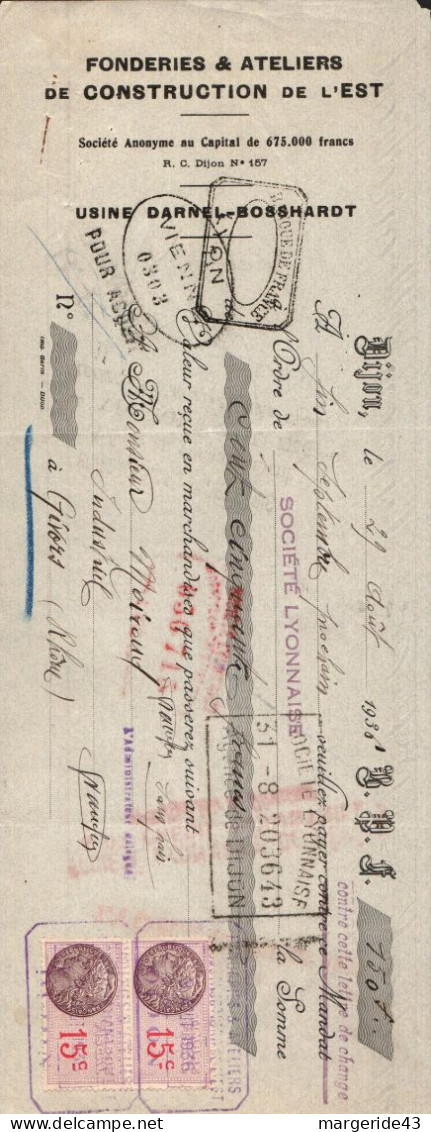 FONDERIES & ATELIERS
DE CONSTRUCTION DE L'EST
Société Anonyme au Capital de 675.000 francs
R. C. Dijon N° 157
USINE DARNEL-BOSSHARDT
BANQUE DE FRANCE
LYON
VIENNE
0303
POUR
Dijon, le 29 Août 1936 B. P. F. 150f.
A fin Septembre prochain veuillez payer contre ce Mandat
contre cette lettre de change
l'Ordre de SOCIÉTÉ LYONNAISE la Somme
de Cent cinquante francs
SOCIÉTÉ LYONNAISE
31-8 203643
DE DIJON
Valeur reçue en marchandises que passerez suivant
sans frais
L'Administrateur délégué
Monsieur
Industriel
N° à Givors (Rhône)
DIJON
15c
15c
1936
ATELIERS
margeride43